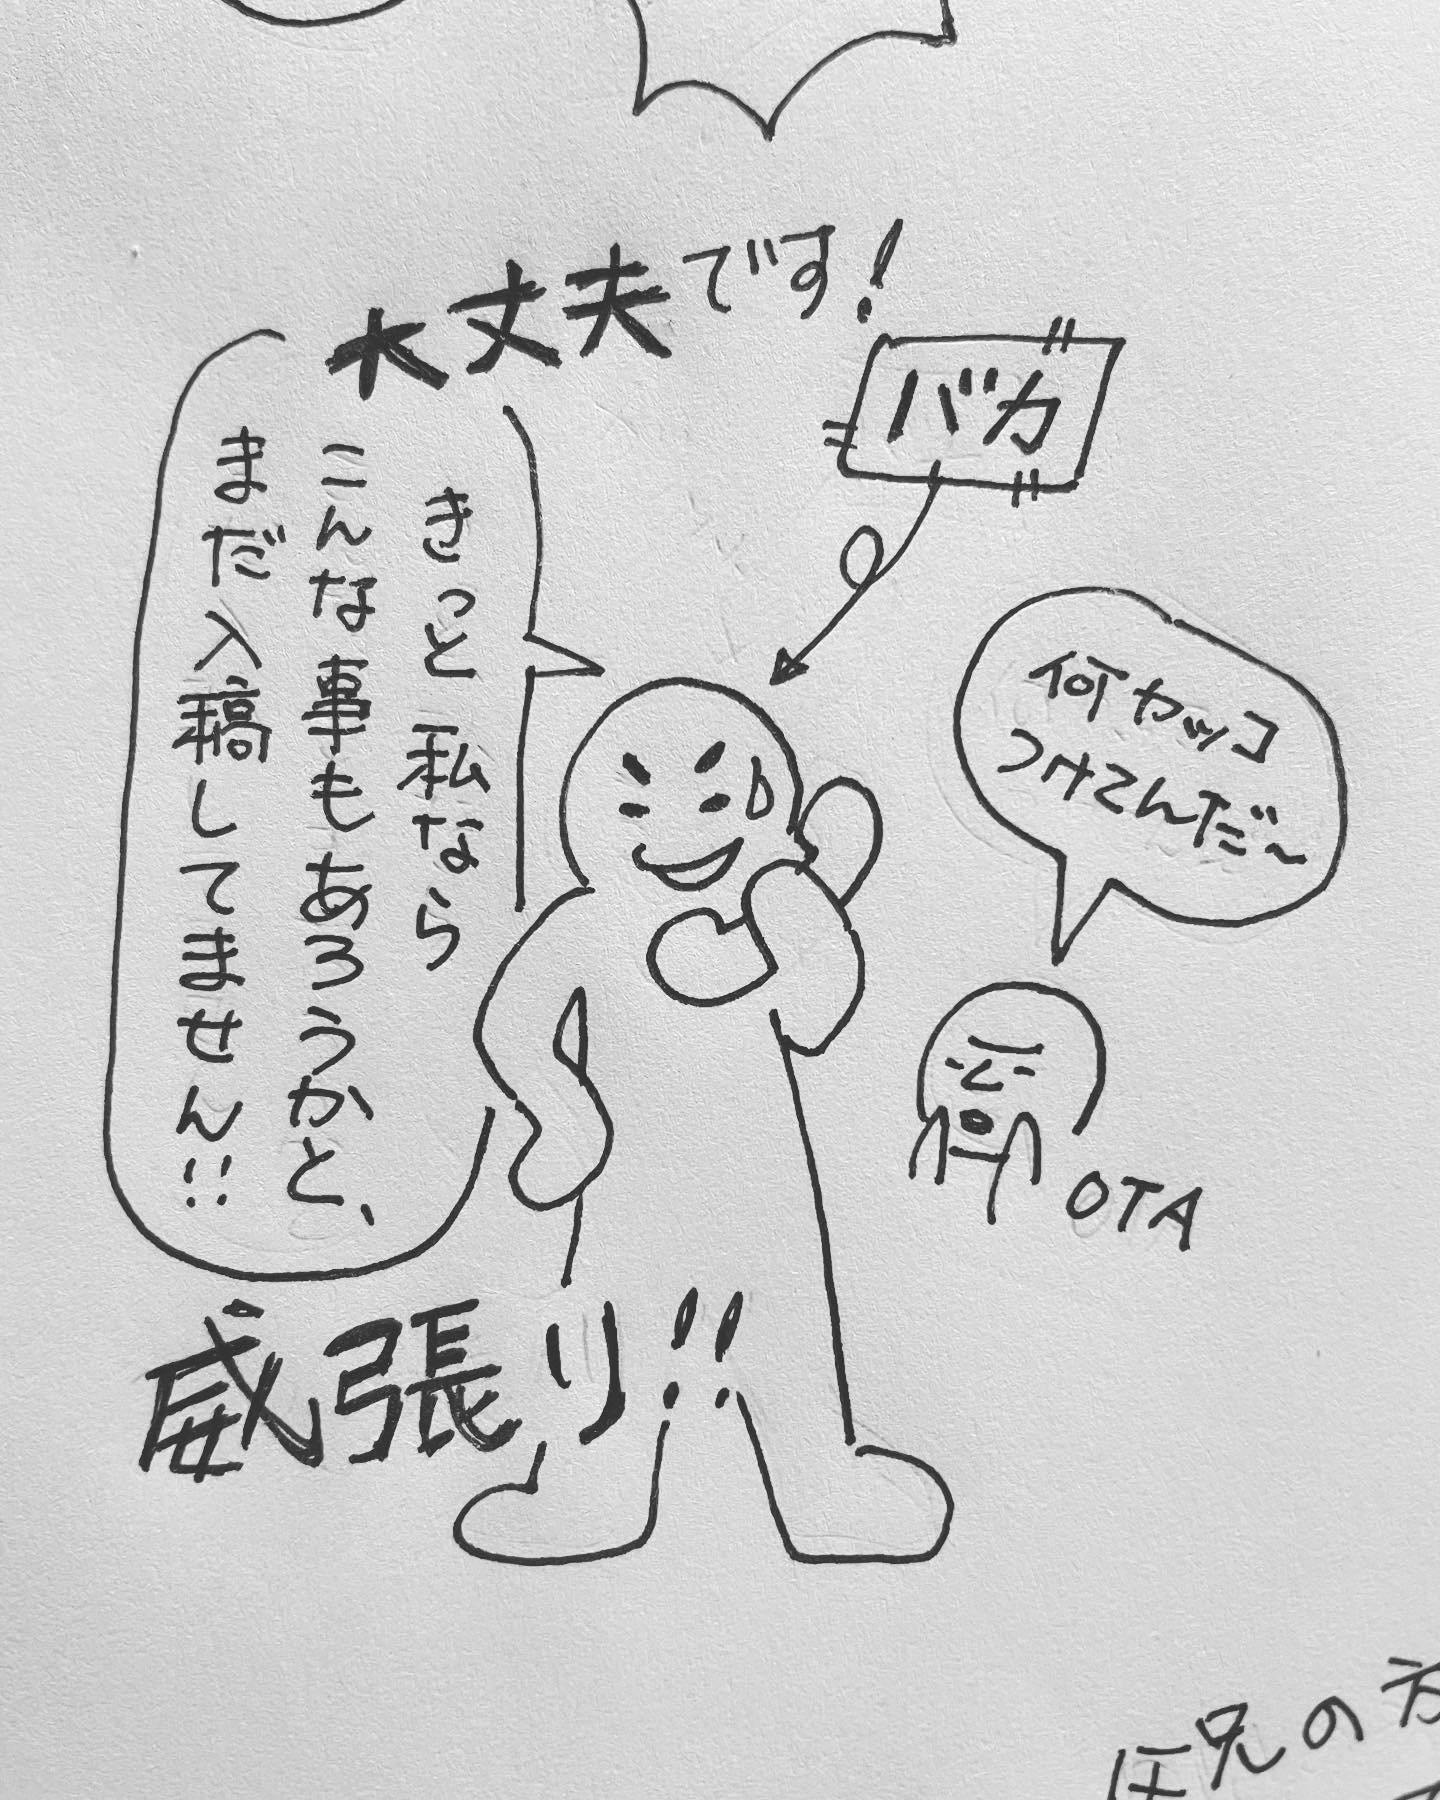 大丈夫です!
きっと私なら
こんな事もあろうかと、
まだ入稿してません!!
バカ
何カッコ
つけてんだ〜
OTA
威張り!!
兄の方